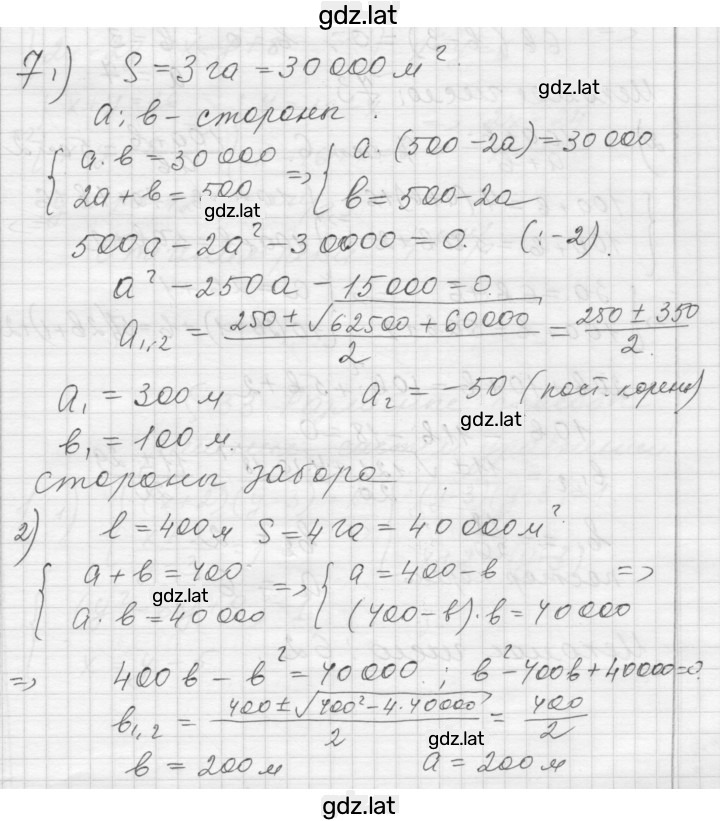 gdz.lat
7 1) S = 3 га = 30 000 м²
gdz.lat
a; в - стороны
{ a · в = 30 000 => { a · (500 - 2a) = 30 000
2a + в = 500 в = 500 - 2a
gdz.lat
500a - 2a² - 30000 = 0. (: -2)
a² - 250a - 15000 = 0
a₁,₂ = (250 ± √(62500 + 60000))/2 = (250 ± 350)/2
a₁ = 300 м a₂ = -50 (пост. корень)
gdz.lat
в₁ = 100 м.
стороны забора
2) l = 400 м S = 4 га = 40 000 м²
{ a + в = 400 => { a = 400 - в =>
gdz.lat
a · в = 40 000 (400 - в) · в = 40000
=> 400 в - в² = 40000 ; в² - 400в + 40000 = 0
в₁,₂ = (400 ± √(400² - 4 · 40000))/2 = 400/2
gdz.lat
в = 200 м a = 200 м
gdz.lat